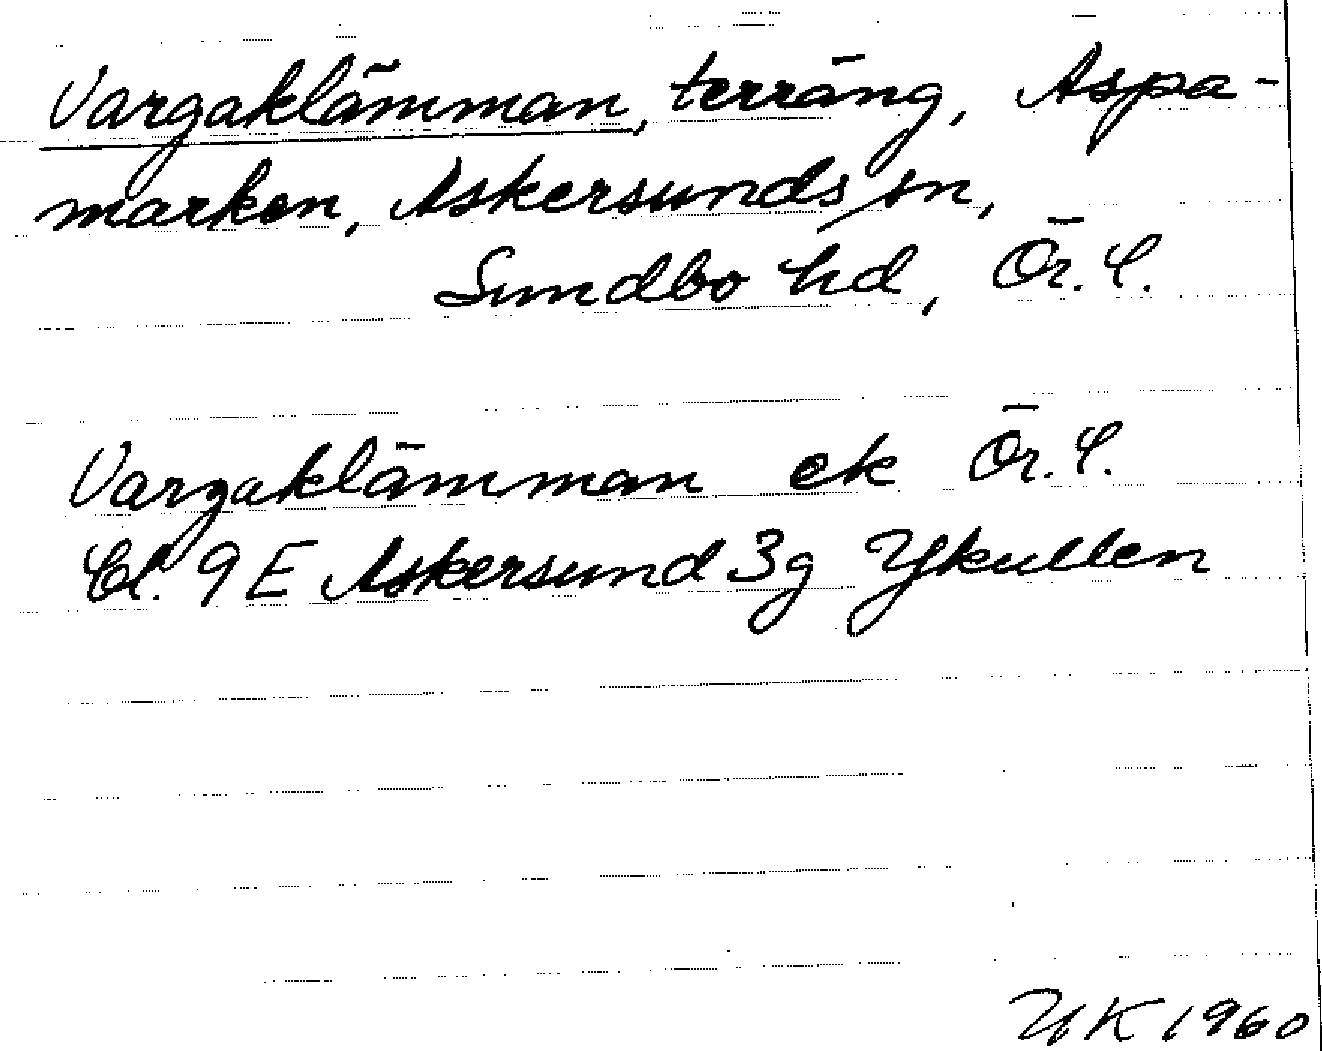 Vargaklämman, terräng, Aspa-
marken, Askersunds sn,
Sundbo hd, Ör. l.
Vargaklämman ek Ör. l.
Bl. 9 E Askersund 3g Ykullen
YK 1960